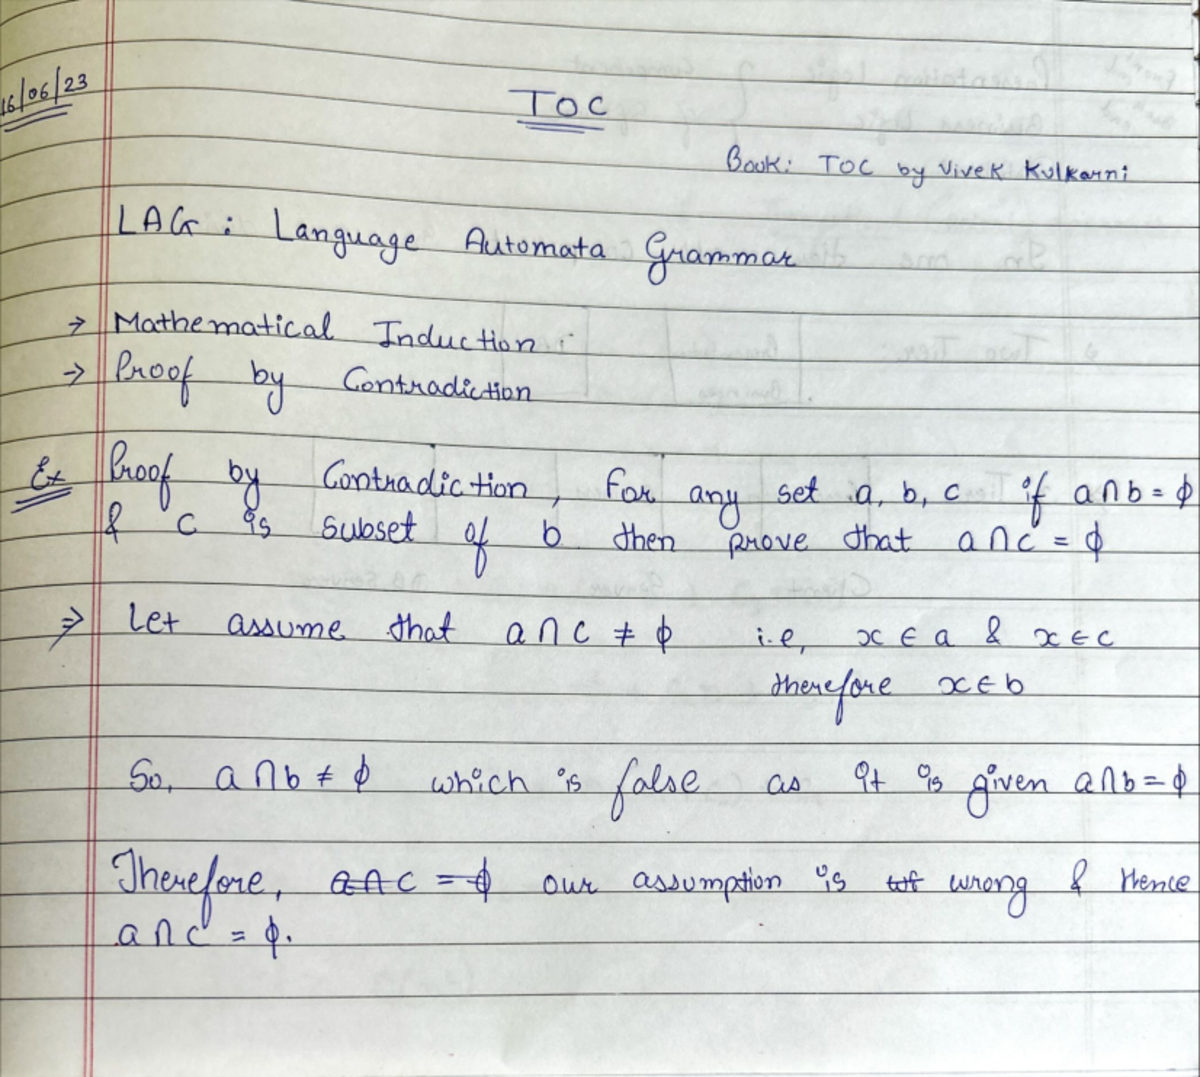 16/06/23
TOC
Book: TOC by Vivek Kulkarni
LAG : Language Automata Grammar
→ Mathematical Induction :
→ Proof by Contradiction
Ex Proof by Contradiction, For any set a, b, c if a∩b = ϕ
& c is subset of b then prove that a∩c = ϕ
⇒ Let assume that a∩c ≠ ϕ i.e, x ∈ a & x ∈ c
therefore x ∈ b
So, a∩b ≠ ϕ which is false as it is given a∩b = ϕ
Therefore, a∩c = ϕ our assumption is wrong & Hence
a∩c = ϕ.